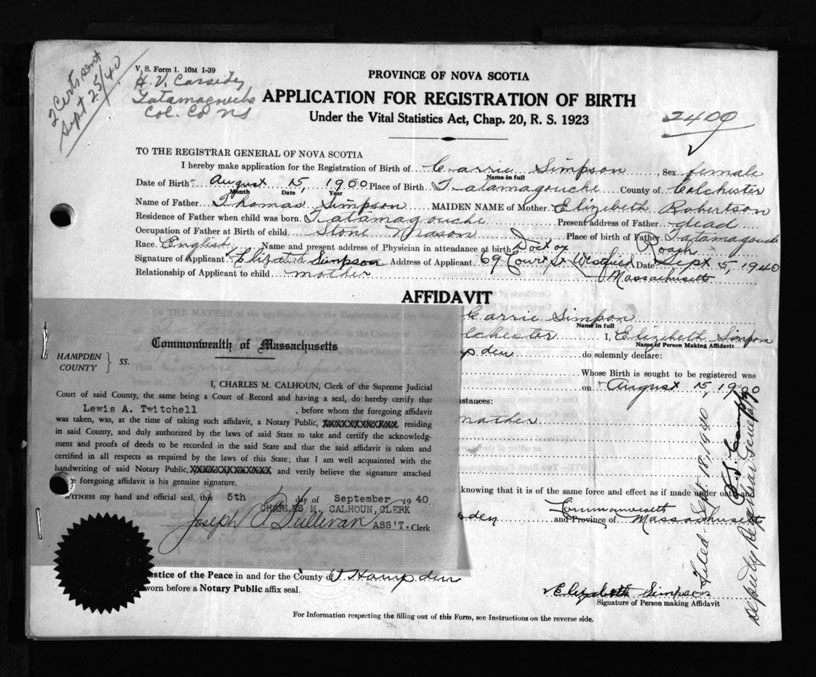 V. S. Form 1. 10M 1-39
2 Certs sent
Sept 25/40
H. V. Cassidy
Tatamagouche
Col. Co NS
PROVINCE OF NOVA SCOTIA
APPLICATION FOR REGISTRATION OF BIRTH
Under the Vital Statistics Act, Chap. 20, R. S. 1923
TO THE REGISTRAR GENERAL OF NOVA SCOTIA
I hereby make application for the Registration of Birth of Carrie Simpson Sex female
Name in full
Date of Birth August 15, 1900 Place of Birth Tatamagouche County of Colchester
Month Date Year
Name of Father Thomas Simpson MAIDEN NAME of Mother Elizebeth Robertson
Residence of Father when child was born Tatamagouche Present address of Father dead
Occupation of Father at Birth of child Stone Mason Place of birth of Father Tatamagouche
Race English Name and present address of Physician in attendance at birth Doctor Roach
Signature of Applicant Elizabeth Simpson Address of Applicant 69 Court St Westfield Date Sept 5, 1940
Massachusetts
Relationship of Applicant to child mother
AFFIDAVIT
Carrie Simpson
Name in full
Colchester I, Elizebeth Simpson
Name of Person Making Affidavit
do solemnly declare:
Whose Birth is sought to be registered was
on August 15, 1900
mother
knowing that it is of the same force and effect as if made under
Commonwealth
and Province of Massachusetts
Commonwealth of Massachusetts
HAMPDEN
COUNTY } SS.
I, CHARLES M. CALHOUN, Clerk of the Supreme Judicial
Court of said County, the same being a Court of Record and having a seal, do hereby certify that
Lewis A. Twitchell , before whom the foregoing affidavit
was taken, was, at the time of taking such affidavit, a Notary Public, XXXXXXXXXXXXX residing
in said County, and duly authorized by the laws of said State to take and certify the acknowledg-
ment and proofs of deeds to be recorded in the said State and that the said affidavit is taken and
certified in all respects as required by the laws of this State; that I am well acquainted with the
handwriting of said Notary Public, XXXXXXXXXXXXX and verily believe the signature attached
foregoing affidavit is his genuine signature.
WITNESS my hand and official seal, the 5th day of September 1940
CHARLES M. CALHOUN, CLERK
Joseph E Sullivan ASS'T. Clerk
Justice of the Peace in and for the County of Hampden
sworn before a Notary Public affix seal.
Elizabeth Simpson
Signature of Person making Affidavit
For Information respecting the filling out of this Form, see Instructions on the reverse side.
Filed Sept 18, 1940
Deputy Registrar General